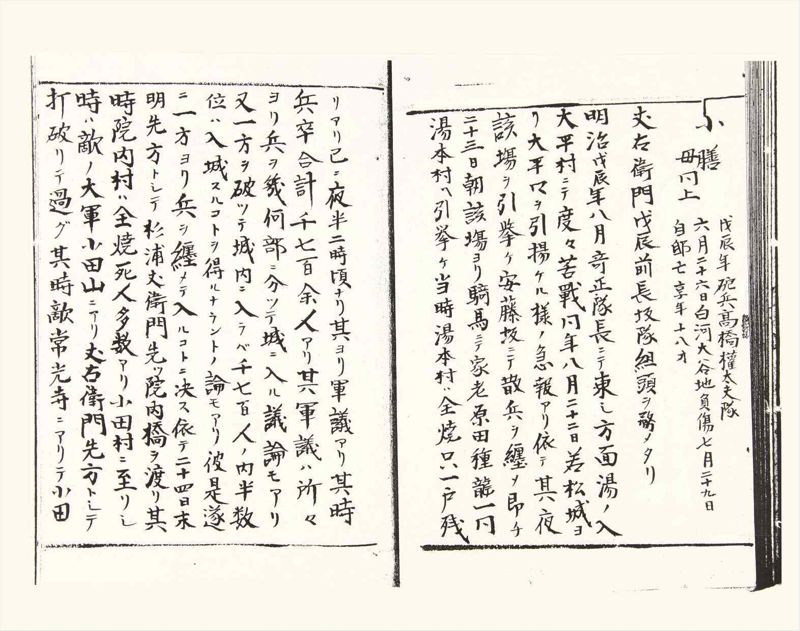 小膳
母同上
戊辰年砲兵髙橋權太夫隊
六月二十六日白河大谷地負傷七月二十九日
自邸亡享年十八才
丈右衛門戊辰前長坂隊組頭ヲ務メタリ
明治戊辰年八月竒正隊長ニテ東シ方面湯ノ入
大平村ニテ度々苦戰同年八月二十二日若松城ヨ
リ大平口ヲ引揚ケル様ノ急報アリ依テ其夜
該場ヲ引挙ケ安藤坂ニテ散兵ヲ纏メ即チ
二十三日朝該場ヨリ騎馬ニテ家老原田種龍一同
湯本村ヘ引挙ケ当時湯本村ハ全焼只一戸残
リアリ已ニ夜半二時頃ナリ其ヨリ軍議アリ其時
兵卒合計千七百余人アリ其軍議ハ所々
ヨリ兵ヲ幾何部ニ分ツテ城ニ入ル議論モアリ
又一方ヲ破ツテ城内ニ入ラベ千七百人ノ内半数
位ハ入城スルコトヲ得ルナラントノ論モアリ彼是遂
ニ一方ヨリ兵ヲ纏メテ入ルコトニ决ス依テ二十四日末
明先方トシテ杉浦丈衛門先ツ院内橋ヲ渡リ其
時院内村ハ全焼死人多数アリ小田村ニ至リシ
時ハ敵ノ大軍小田山ニアリ丈右衛門先方トシテ
打破リテ過グ其時敵常光寺ニアリテ小田